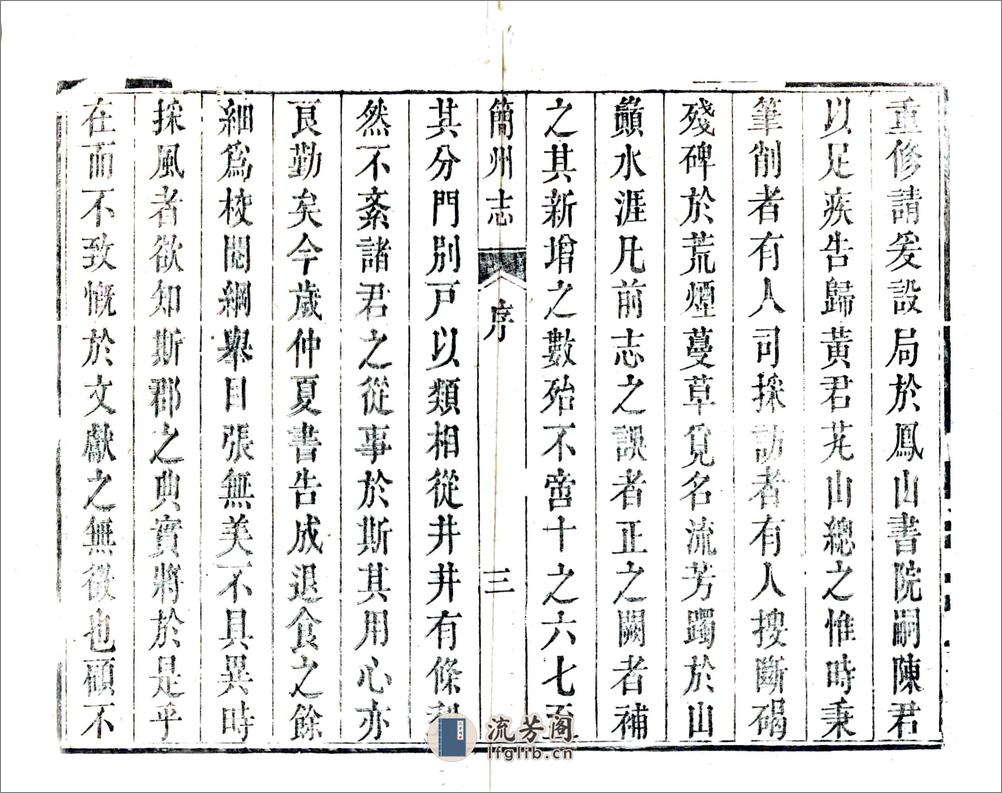 重修請爰設局於鳳山書院嗣陳君
以足疾告歸黃君芃山總之惟時秉
筆削者有人司採訪者有人搜斷碣
殘碑於荒煙蔓草覓名流芳躅於山
巔水涯凡前志之誤者正之闕者補
之其新增之數殆不啻十之六七至
簡州志 序 三
其分門別戸以類相從井井有條秩
然不紊諸君之從事於斯其用心亦
良勤矣今歲仲夏書告成退食之餘
細為校閱綱舉目張無美不具異時
採風者欲知斯郡之典實將於是乎
在而不致慨於文獻之無徵也顧不
流芳阁
lfglib.cn